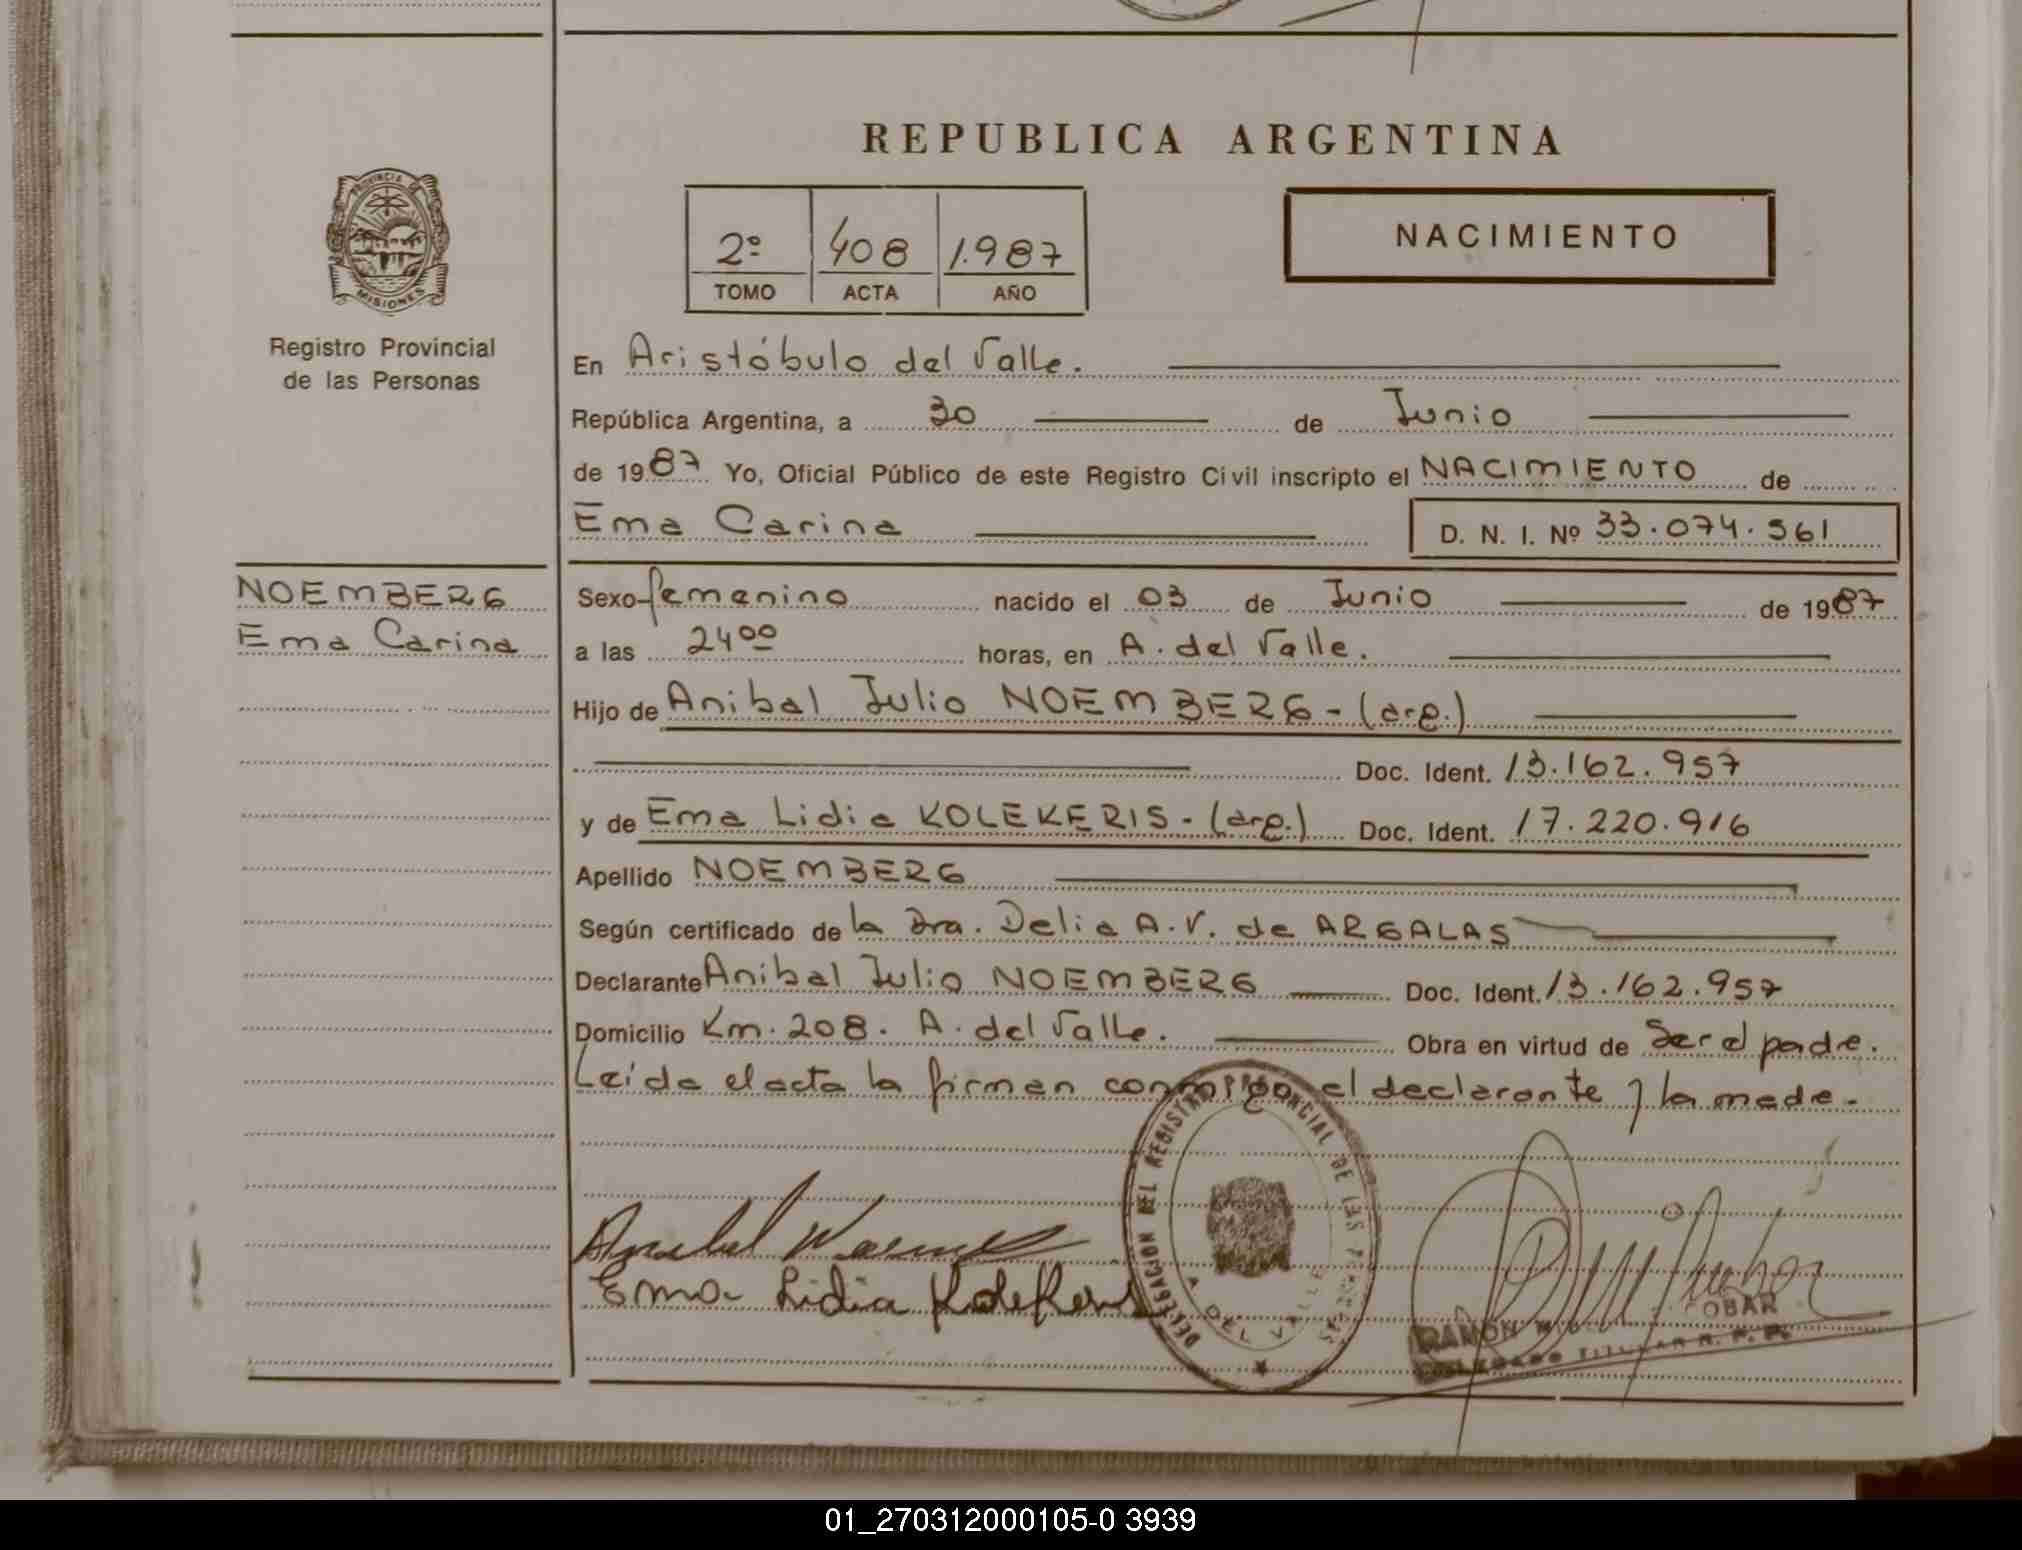 REPUBLICA ARGENTINA
PROVINCIA DE
MISIONES
Registro Provincial
de las Personas
2º 408 1.987
TOMO ACTA AÑO
NACIMIENTO
En Aristóbulo del Valle.
República Argentina, a 30 de Junio
de 1987 Yo, Oficial Público de este Registro Civil inscripto el NACIMIENTO de
Ema Carina D. N. I. Nº 33.074.561
NOEMBERG
Ema Carina
Sexo femenino nacido el 03 de Junio de 1987
a las 24⁰⁰ horas, en A. del Valle.
Hijo de Anibal Julio NOEMBERG - (arg.)
Doc. Ident. 13.162.957
y de Ema Lidia KOLEKERIS - (arg.) Doc. Ident. 17.220.916
Apellido NOEMBERG
Según certificado de la Dra. Delia A. V. de ARGALAS
Declarante Anibal Julio NOEMBERG Doc. Ident. 13.162.957
Domicilio Km. 208. A. del Valle. Obra en virtud de Ser el padre.
Leida el acta la firman conmigo el declarante y la madre.
DELEGACION DEL REGISTRO PROVINCIAL DE LAS PERSONAS
A. DEL VALLE
Anibal
Ema Lidia
RAMON
TITULAR R. P. P.
01_270312000105-0 3939